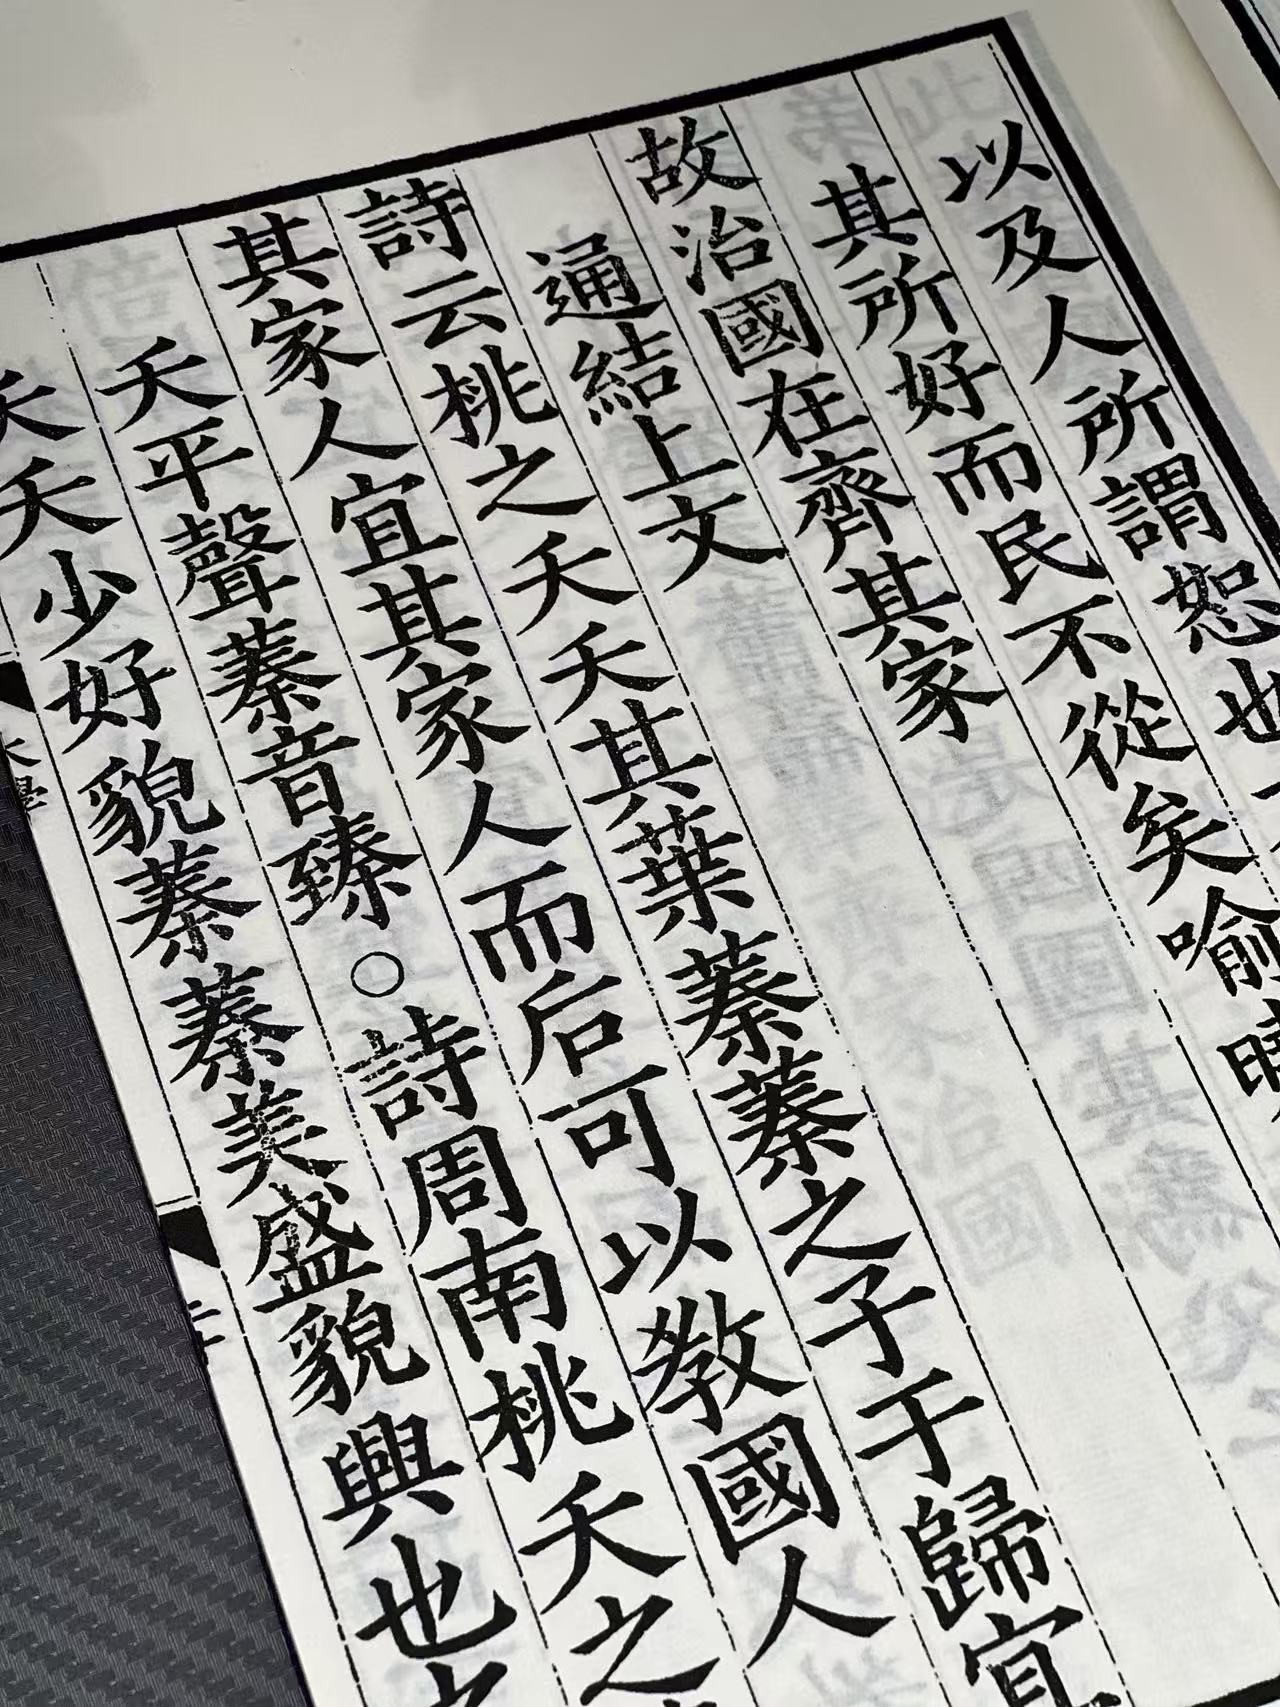 以及人所謂恕也
其所好而民不從矣喻
故治國在齊其家
通結上文
詩云桃之夭夭其葉蓁蓁之子于歸宜
其家人宜其家人而后可以教國人
夭平聲蓁音臻○詩周南桃夭之
夭夭少好貌蓁蓁美盛貌興也
大學